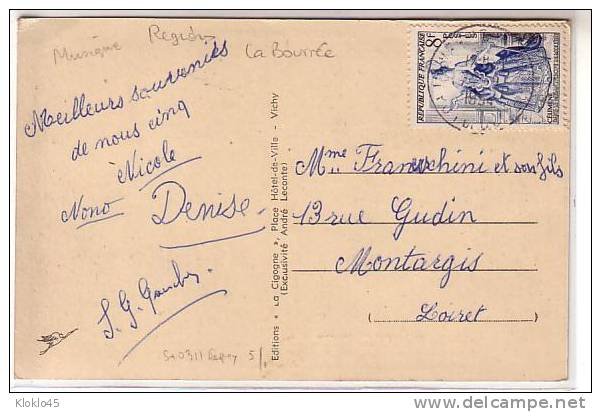 Musique
Régions
La Bourrée
Meilleurs souvenirs
de nous cinq
Nicole
Nono Denise
S. G.
So0311 5/
Editions « La Cigogne », Place Hôtel-de-Ville - Vichy
(Exclusivité André Leconte)
8F
POSTES
REPUBLIQUE FRANÇAISE
Mme Franchini et son fils
13 rue Gudin
Montargis
(Loiret)
Kloklo45
www.delcampe.net